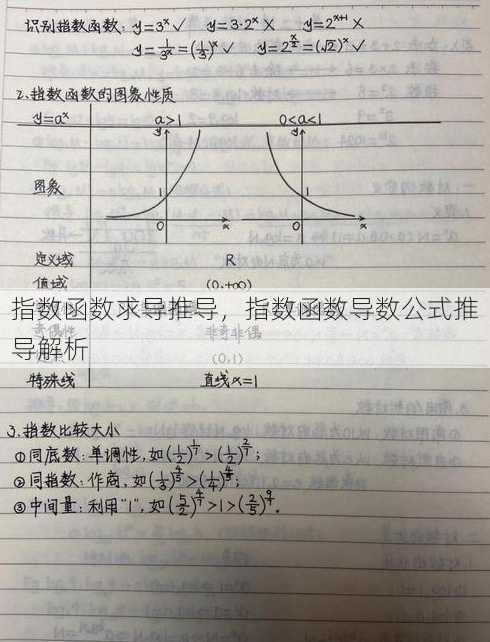 识别指数函数: y=3ˣ✓ y=3·2ˣ✗ y=2ˣ⁺¹✗
y=1/3ˣ=(1/3)ˣ✓ y=2^(x/2)=(√2)ˣ✓
2.指数函数的图象性质
y=aˣ a>1 0<a<1
y y
图象 1 1
0 x 0 x
定义域 R
值域 (0,+∞)
指数函数求导推导，指数函数导数公式推
奇偶性 非奇非偶
导解析
(0,1)
特殊线 直线x=1
3.指数比较大小
①同底数:单调性,如(1/2)^(1/7)>(1/2)^(2/7);
②同指数:作商,如(1/3)^(4/5)>(1/4)^(4/5);
③中间量:利用"1",如(5/2)^(4/7)>1>(2/5)^(9/4).